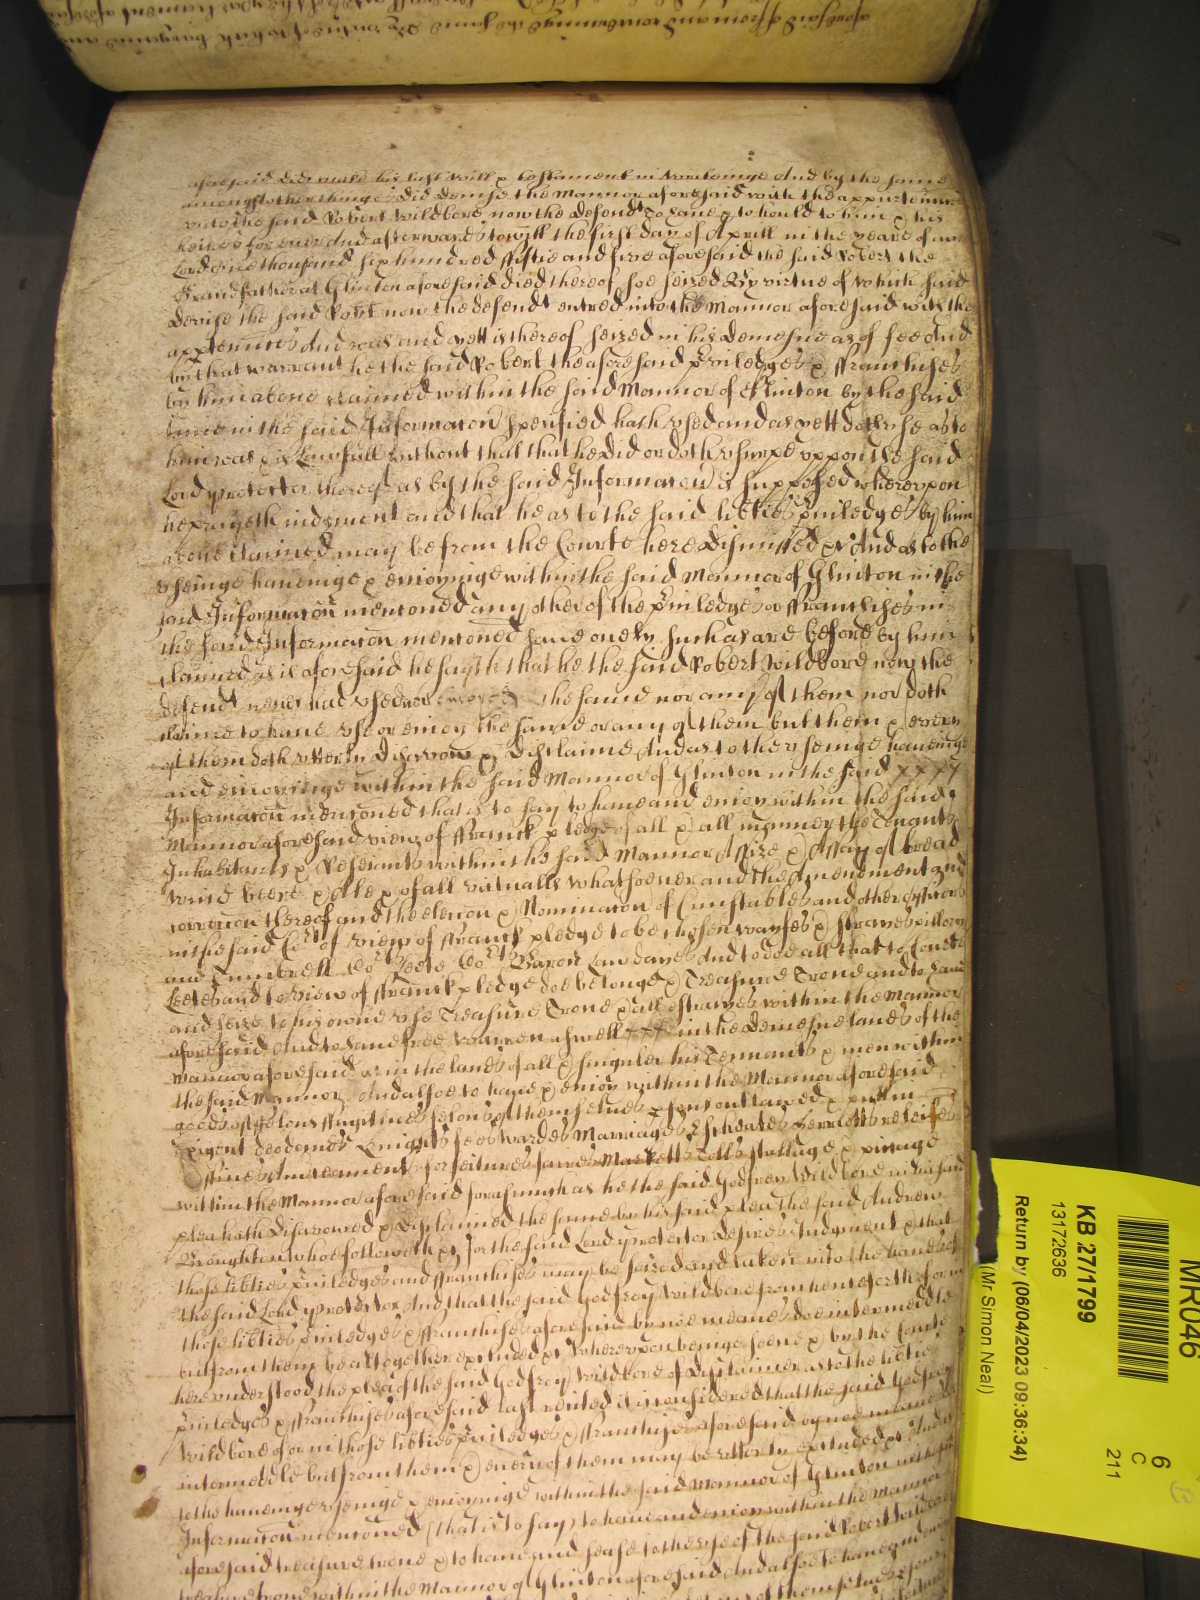 aforesaid did make his last will & testament in writeinge And by the same
amongst other things did devise the Mannor aforesaid with the appurtenn
unto the said Robert Wildbore now the defendt To have & to hould to him & his
heires for ever And afterwards to witt the first day of Aprill in the yeare of our
Lord one thousand six hundred fiftie and five aforesaid the said Robert the
Grandfather at Glinton aforesaid died thereof soe seized By virtue of which said
devise the said Robt now the defendt entred into the Mannor aforesaid with the
apptennces And was and yett is thereof seized in his demesne as of fee And
by that warrant he the said Robert the aforesaid priviledges & ffranchises
by him above claimed within the said Mannor of Glinton by the said
time in the said Informacon specified hath used and as yett doth use as to
him was & is Lawfull without that that he did or doth usurpe uppon the said
Lord protector thereof as by the said Informacon is supposed whereupon
he prayeth judgment and that he as to the said libties priviledges by him
above claimed may be from the Courte here dismissed &c And as to the
useinge haveinge & enjoyinge within the said Mannor of Glinton in the
said Informacon menconed any other of the priviledges or ffranchises in
the said Informacon menconed save onely such as are before by him
claimed as is aforesaid he sayth that he the said Robert Wildbore now the
defendt never had used nor enjoyed the same nor any of them nor doth
claime to have use or enjoy the same or any of them but them & every
of them doth utterly disavow & disclaime And as to the useinge haveinge
and enjoyinge within the said Mannor of Glinton in the said xxxx
Informacon menconed that is to say to have and enjoy within the said
Mannor aforesaid view of ffranck pledge of all & all manner the Tenants
Inhabitants & Reseants within the said Mannor Assize & Assay of bread
wine beere & Ale & of all victualls whatsoever and the Amendement and
correccon thereof and the eleccon & Nominacon of Cunstables and other officers
in the said Cort of view of ffranck pledge to be chosen wayfes & strayes pillory
and Tumbrell Cort Leete Cort Baron Law dayes And to doe all that to Courte
Leetes and to view of ffranck pledge doe belonge & Treasure Trove and to have
and seize to his owne use Treasure Trove & all estrayes within the Mannor
aforesaid And to have free warren aswell xxx in the demesne lands of the
Mannor aforesaid as in the lands of all & singuler his Tennants & men within
the said Mannor And alsoe to have & enjoy within the Mannor aforesaid
goods of felons ffugitives felons of themselves psons outlawed & putt in
Exigent deodands knights fees wardes Marriages Escheates herriotts releifes
ffines Amerciaments forfeitures faires Marketts Tolls stallage & piccage
within the Mannor aforesaid forasmuch as he the said Godfrey Wildbore in his said
plea hath disavowed & disclaimed the same by his said plea the said Andrew
Broughton whoe followeth &c for the said Lord protector desires Judgment & that
those libties priviledges and ffranchises may be seized and taken into the hands of
the said Lord protector And that the said Godfrey Wildbore from henceforth of or in
those libties priviledges & ffranchises aforesaid by noe meanes doe intermeddle
but from them be altogether excluded &c Whereupon beinge seene & by the Courte
here understood the plea of the said Godfrey Wildbore of disclaimer as to the libties
priviledges & ffranchises aforesaid last recited it is considered that the said Godfrey
Wildbore of or in those libties priviledges & ffranchises aforesaid by noe meanes
intermeddle but from them & every of them may be utterly excluded &c And as
to the haveinge useinge & enjoyinge within the said Mannor of Glinton in the said
Informacon menconed (that is to say) to have and enjoy within the Mannor
aforesaid treasure trove & to have and sease to the use of the said Robert Wildbore
treasure trove within the Mannor of Glinton aforesaid And alsoe to have and enjoy
MR046
6
C
211
KB 27/1799
13172636
Return by (06/04/2023 09:36:34)
(Mr Simon Neal)